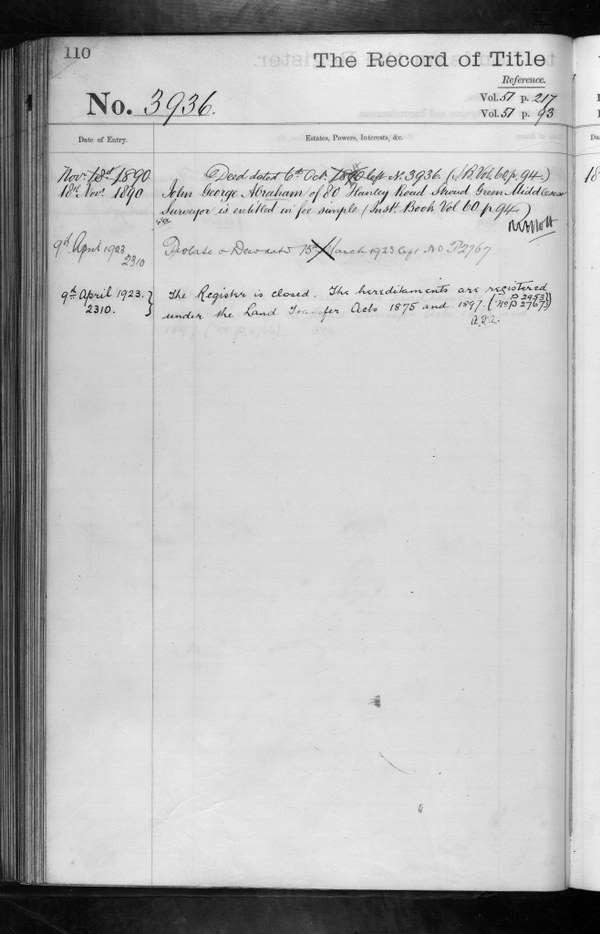 110
The Record of Title
Reference.
No. 3936.
Vol. 57 p. 217
Vol. 57 p. 93
Date of Entry.
Estates, Powers, Interests, &c.
Nov. 1890
Deed dated 6th Oct. 1890 left No. 3936. (I.R. Vol. 60 p. 94.)
18th Nov. 1890
John George Abraham of 80 Hanley Road Stroud Green Middlesex
Surveyor is entitled in fee simple (Inst. Book Vol 60 p. 94)
9th April 1923
2310
Probate dated 13th March 1923 left No P2767
9th April 1923.
2310.
The Register is closed. The hereditaments are registered
under the Land Transfer Acts 1875 and 1897. (No P 2767)